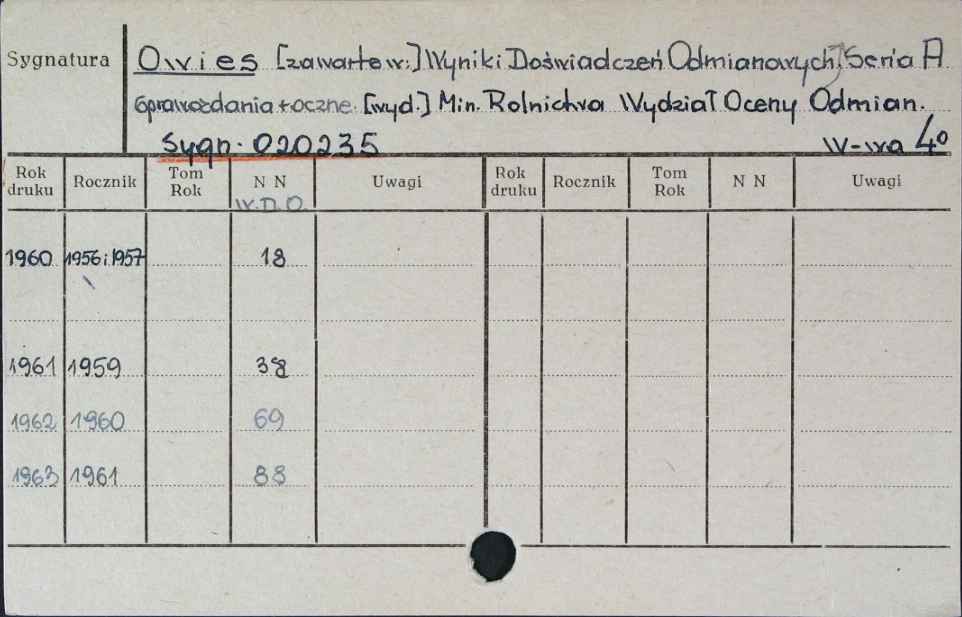 Sygnatura Owies [zawarte w:] Wyniki Doświadczeń Odmianowych, Seria A
Sprawozdania roczne. [wyd.] Min. Rolnictwa Wydział Oceny Odmian.
Sygn. 020235 W-wa 4°
Rok druku Rocznik Tom Rok N N Uwagi Rok druku Rocznik Tom Rok N N Uwagi
W.D.O.
1960 1956 i 1957 18
1961 1959 38
1962 1960 69
1963 1961 88